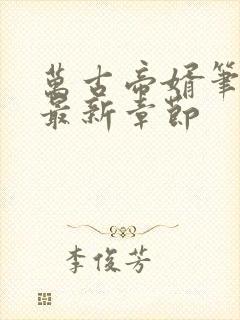 萬古帝婿筆
最新章節
李俊芳